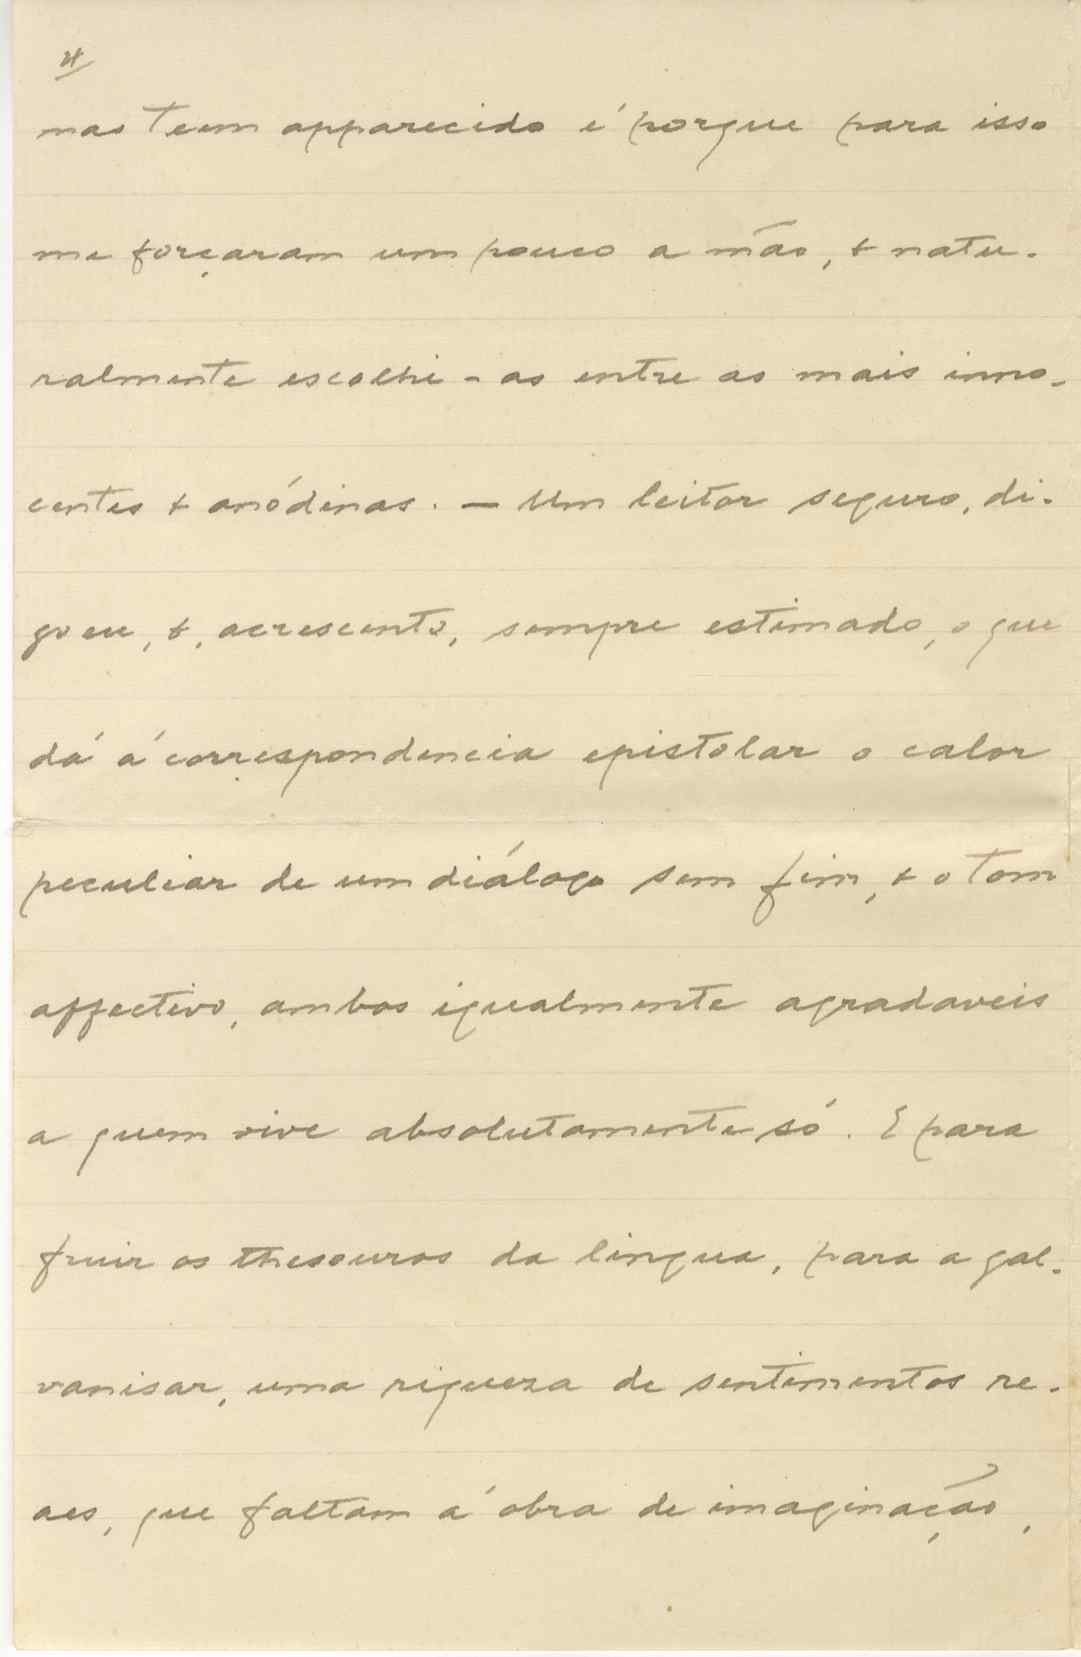 4
mas teem apparecido é porque para isso
me forçaram um pouco a mão, & natu-
ralmente escolhi-as entre as mais inno-
centes & anódinas. — Um leitor seguro, di-
go eu, &, acrescento, sempre estimado, o que
dá á correspondencia epistolar o calor
peculiar de um diálogo sem fim, & o tom
affectivo, ambos igualmente agradaveis
a quem vive absolutamente só. E para
fruir os thesouros da lingua, para a gal-
vanisar, uma riqueza de sentimentos re-
aes, que faltam á obra de imaginação,